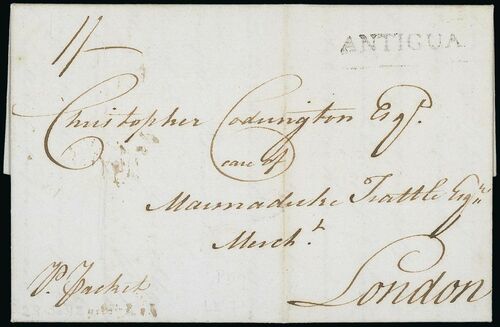 1/-
ANTIGUA
Christopher Codrington Esqr.
care of
Marmaduke Trattle Esqr.
Mercht.
London
P. Packet